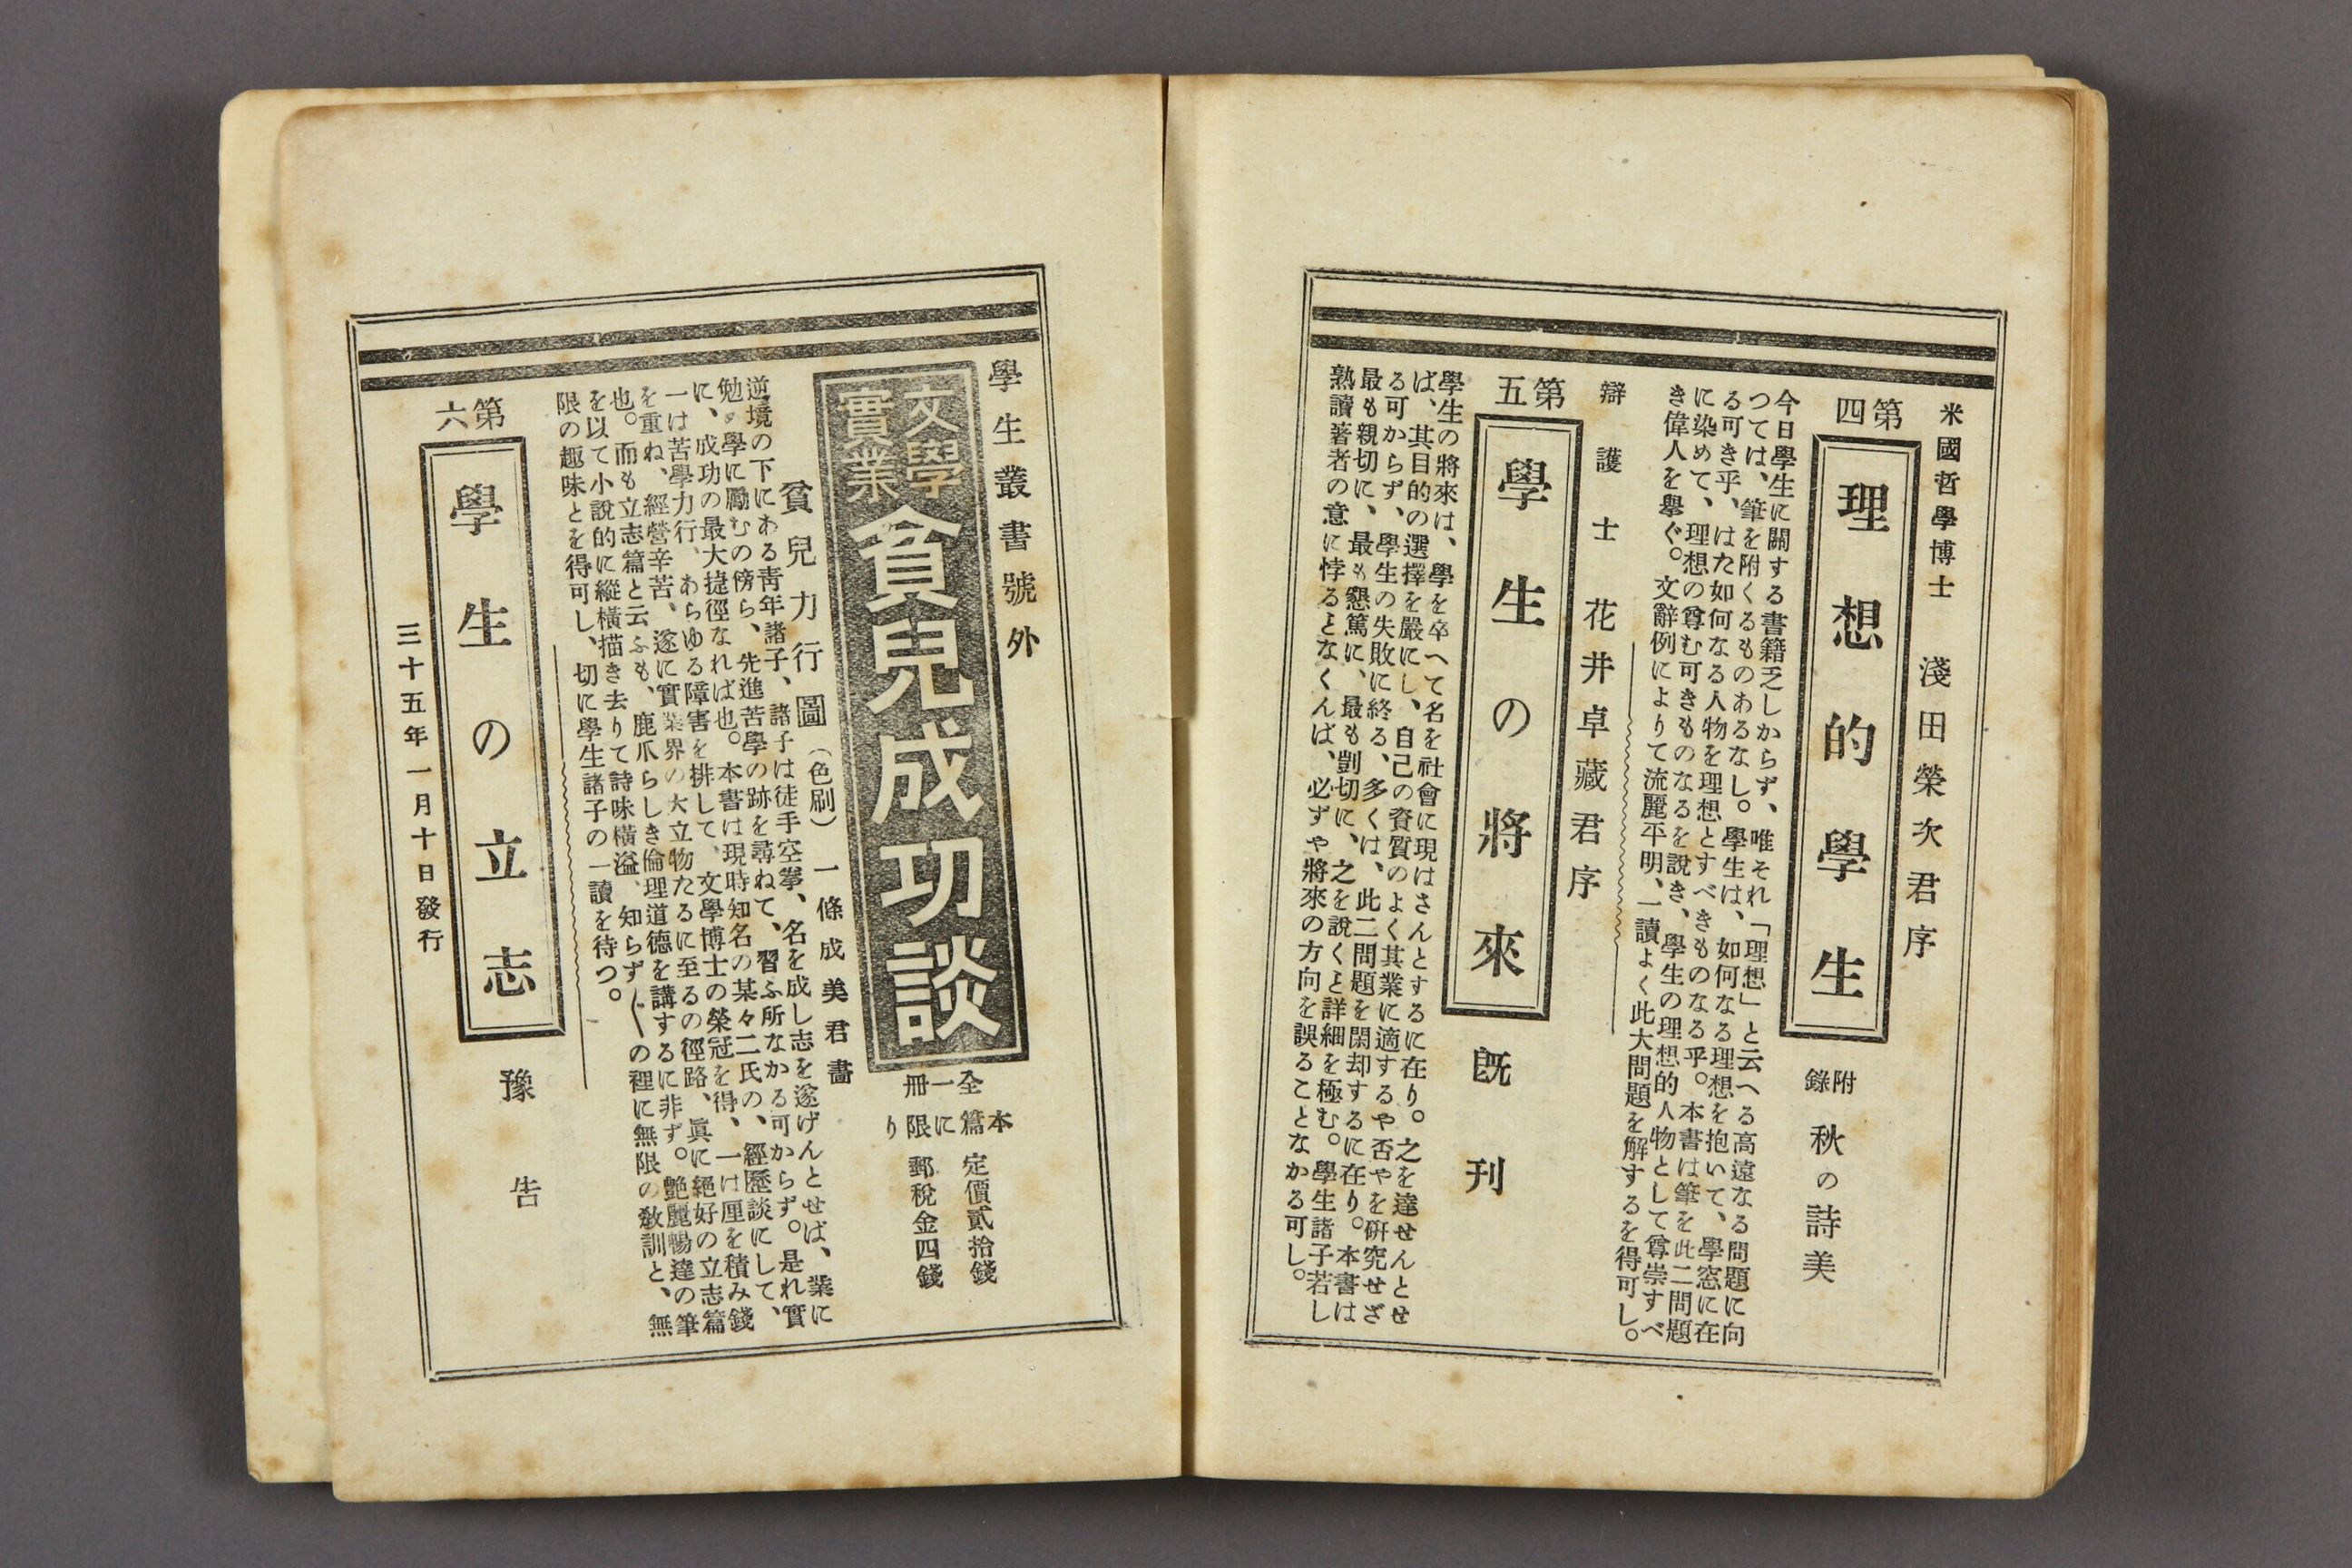 米國哲學博士 淺田榮次君序
第四
理想的學生
附錄 秋の詩美
今日學生に關する書籍乏しからず、唯それ「理想」と云へる高遠なる問題に向
つては、筆を附くるものあるなし。學生は、如何なる理想を抱いて、學窓に在
る可き乎、はた如何なる人物を理想とすべきものなる乎。本書は筆を此二問題
に染めて、理想の尊む可きものなるを說き、學生の理想的人物として尊崇すべ
き偉人を擧ぐ。文辭例によりて流麗平明、一讀よく此大問題を解するを得可し。
辯護士 花井卓藏君序
第五
學生の將來
既刊
學生の將來は、學を卒へて名を社會に現はさんとするに在り。之を達せんとせ
ば、其目的の選擇を嚴にし、自己の資質のよく其業に適するや否やを硏究せざ
る可からず、學生の失敗に終る、多くは、此二問題を閑却するに在り。本書は
最も親切に、最も懇篤に、最も剴切に、之を說くと詳細を極む。學生諸子若し
熟讀著者の意に悖るとなくんば、必ずや將來の方向を誤ることなかる可し。
學生叢書號外
文學實業 貧兒成功談
全一冊
本篇に限り
定價貳拾錢
郵稅金四錢
貧兒力行圖(色刷) 一條成美君畵
逆境の下にある靑年諸子、諸子は徒手空拳、名を成し志を遂げんとせば、業に
勉め學に勵むの傍ら、先進苦學の跡を尋ねて、習ふ所なかる可からず。是れ實
に、成功の最大捷徑なれば也。本書は現時知名の某々二氏の、經歷談にして、
一は苦學力行、あらゆる障害を排して、文學博士の榮冠を得、一は厘を積み錢
を重ね、經營辛苦、遂に實業界の大立物たるに至るの徑路、眞に絕好の立志篇
也。而も立志篇と云ふも、鹿爪らしき倫理道德を講するに非ず。艶麗暢達の筆
を以て小說的に縱橫描き去りて詩味橫溢、知らず〱の裡に無限の敎訓と、無
限の趣味とを得可し、切に學生諸子の一讀を待つ。
第六
學生の立志
豫告
三十五年一月十日發行